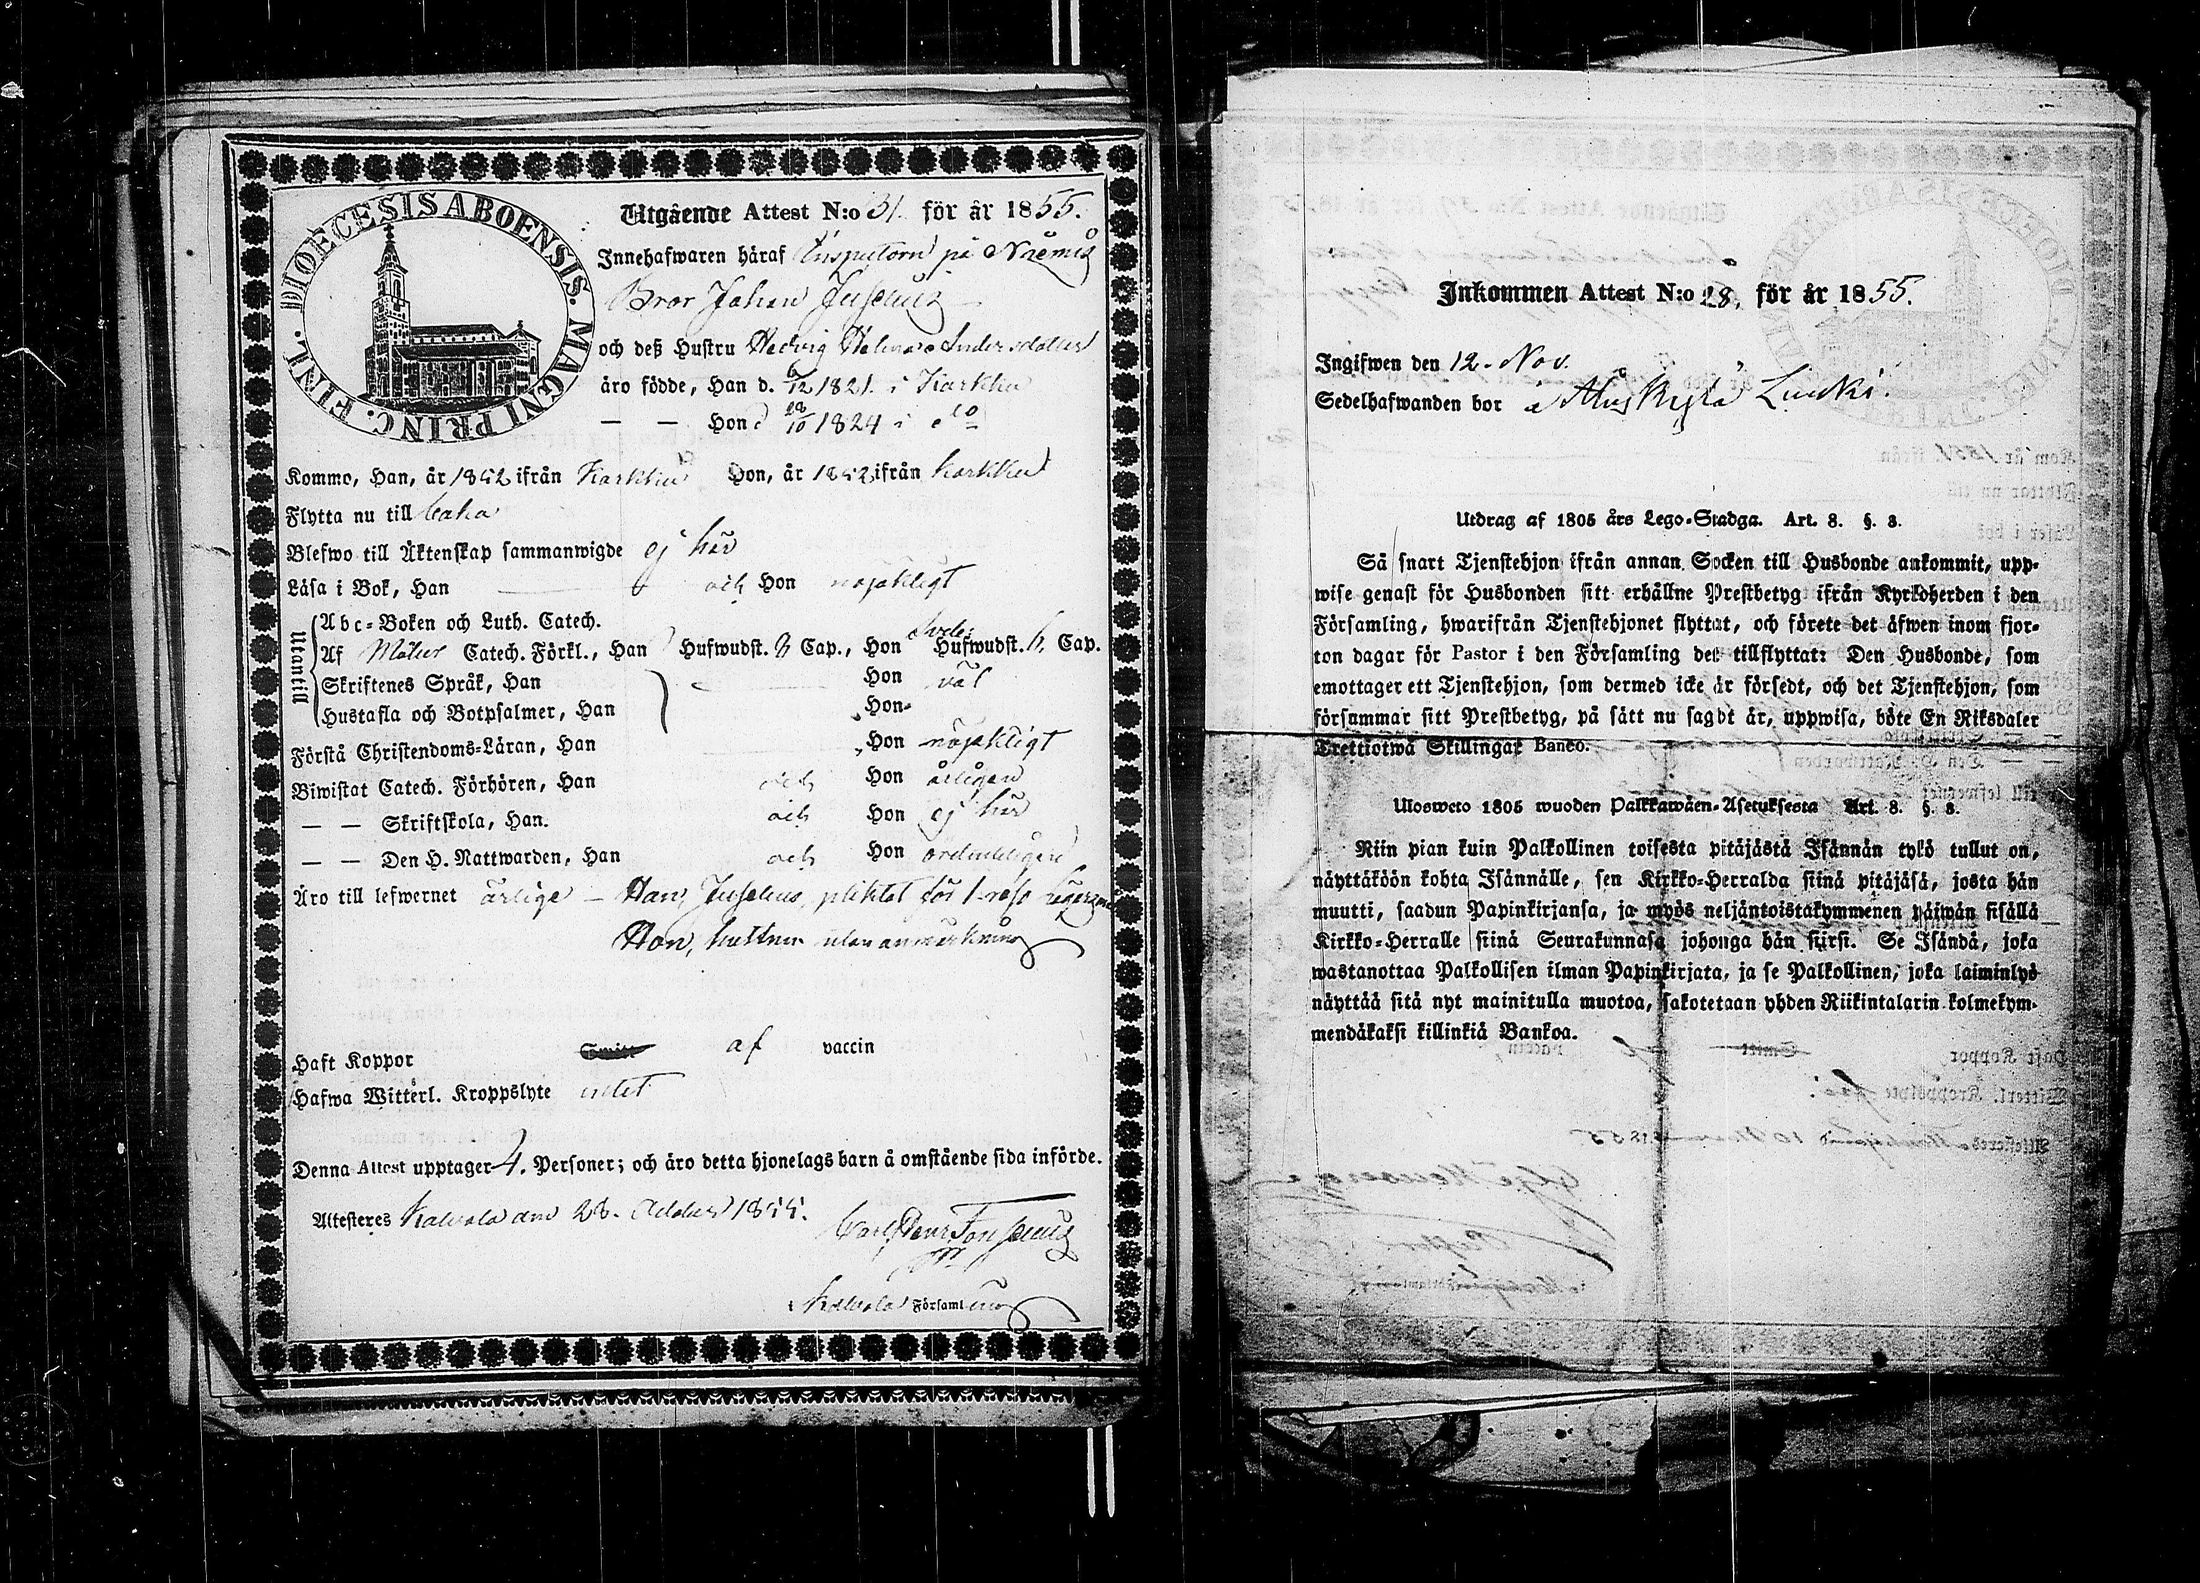 DIOECESIS ABOENSIS. MAGNI PRINC. FINL.
Utgående Attest N:o 31. för år 1855.
Innehafwaren häraf Inspectorn på Näemis
Bror Johan Juselius
och deß Hustru Hedvig Helena Andersdotter
äro födde, Han d. 6/12 1821 i Karkku
— — Hon d 28/10 1824 i do
Kommo, Han, år 1852 ifrån Karkku Hon, år 1852 ifrån Karkku
Flytta nu till
Blefwo till Äktenskap sammanwigde ej här
Läsa i Bok, Han och Hon nöjaktigt
Utantill
Abc-Boken och Luth. Catech.
Af Catech. Förkl., Han Hufwudst. 8 Cap., Hon Hufwudst. 6. Cap.
Skriftenes Språk, Han Hon väl
Hustafla och Botpsalmer, Han Hon
Förstå Christendoms-Läran, Han Hon nöjaktigt
Biwistat Catech. Förhören, Han och Hon årligen
— — Skriftskola, Han. och Hon ej här
— — Den H. Nattwarden, Han och Hon ordentligen
Äro till lefwernet ärlige – Han, Juselius, pliktat för 1 resa
Hon, hustrun utan anmärkning
Haft Koppor Smitt af vaccin
Hafwa Witterl. Kroppslyte intet
Denna Attest upptager 4. Personer; och äro detta hjonelags barn å omstående sida införde.
Attesteres Kalvola den 28. October 1855.
Kalvola Församling
Inkommen Attest N:o 28. för år 1855.
Ingifwen den 12. Nov.
Sedelhafwanden bor
Utdrag af 1805 års Lego-Stadga. Art. 8. §. 8.
Så snart Tjenstehjon ifrån annan Socken till Husbonde ankommit, upp-
wise genast för Husbonden sitt erhållne Prestbetyg ifrån Kyrkoherden i den
Församling, hwarifrån Tjenstehjonet flyttat, och förete det äfwen inom fjor-
ton dagar för Pastor i den Församling det tillflyttat: Den Husbonde, som
emottager ett Tjenstehjon, som dermed icke är försedt, och det Tjenstehjon, som
försummar sitt Prestbetyg, på sätt nu sagdt är, uppwisa, böte En Riksdaler
Trettiotwå Skillingar Banco.
Ulosweto 1805 wuoden Palkkawäen-Asetuksesta Art. 8. §. 8.
Niin pian kuin Palkollinen toisesta pitäjästä Isännän tykö tullut on,
näyttäköön kohta Isännälle, sen Kirkko-Herralda siinä pitäjäsä, josta hän
muutti, saadun Papinkirjansa, ja myös neljäntoistakymmenen päiwän sisällä
Kirkko-Herralle siinä Seurakunnasa johonga hän siirsi. Se Isändä, joka
wastanottaa Palkollisen ilman Papinkirjata, ja se Palkollinen, joka laiminlyö
näyttää sitä nyt mainitulla muotoa, sakotetaan yhden Riikintalarin kolmekym-
mendäkaksi killinkiä Bankoa.